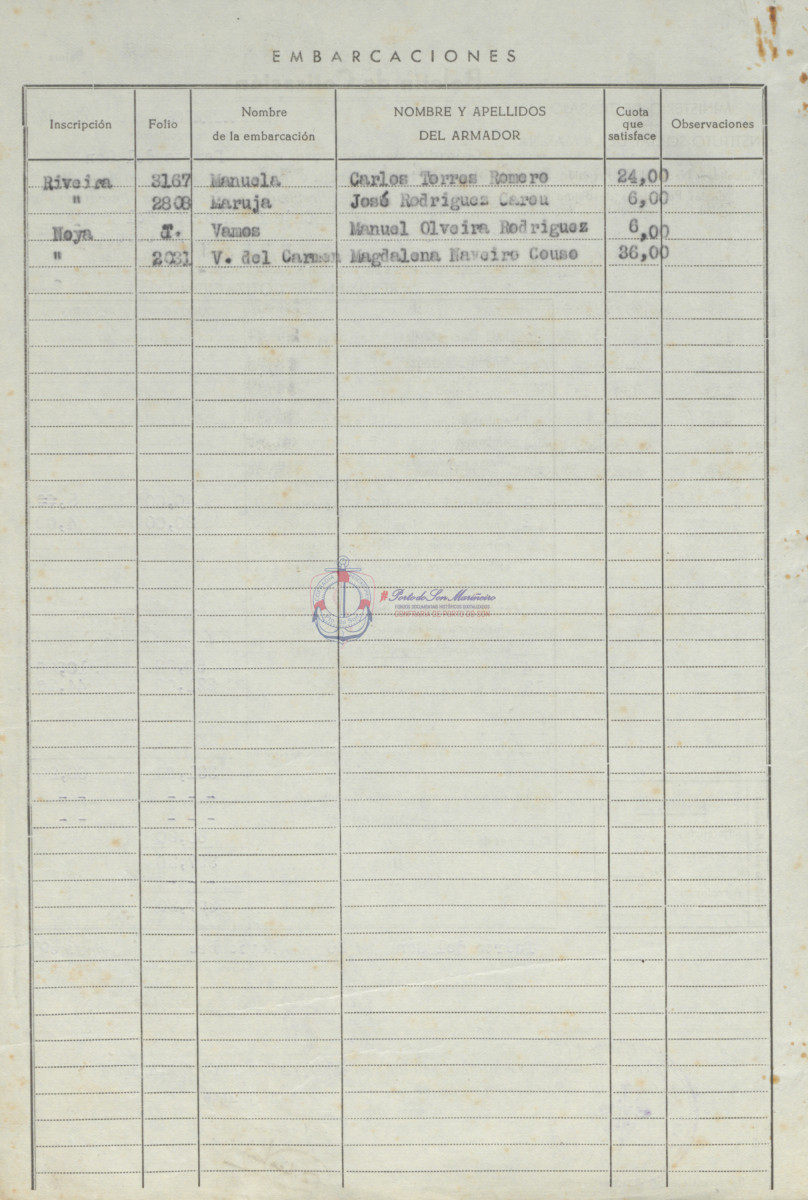 EMBARCACIONES
Inscripción Folio Nombre de la embarcación NOMBRE Y APELLIDOS DEL ARMADOR Cuota que satisface Observaciones
Riveira 3167 Manuela Carlos Torres Romero 24,00
" 2808 Maruja José Rodriguez Careu 6,00
Noya T. Vamos Manuel Olveira Rodriguez 6,00
" 2031 V. del Carmen Magdalena Naveiro Couso 36,00
#Porto do Son Mariñeiro
FONDOS DOCUMENTAIS HISTÓRICOS DIXITALIZADOS
CONFRARÍA DE PORTO DO SON